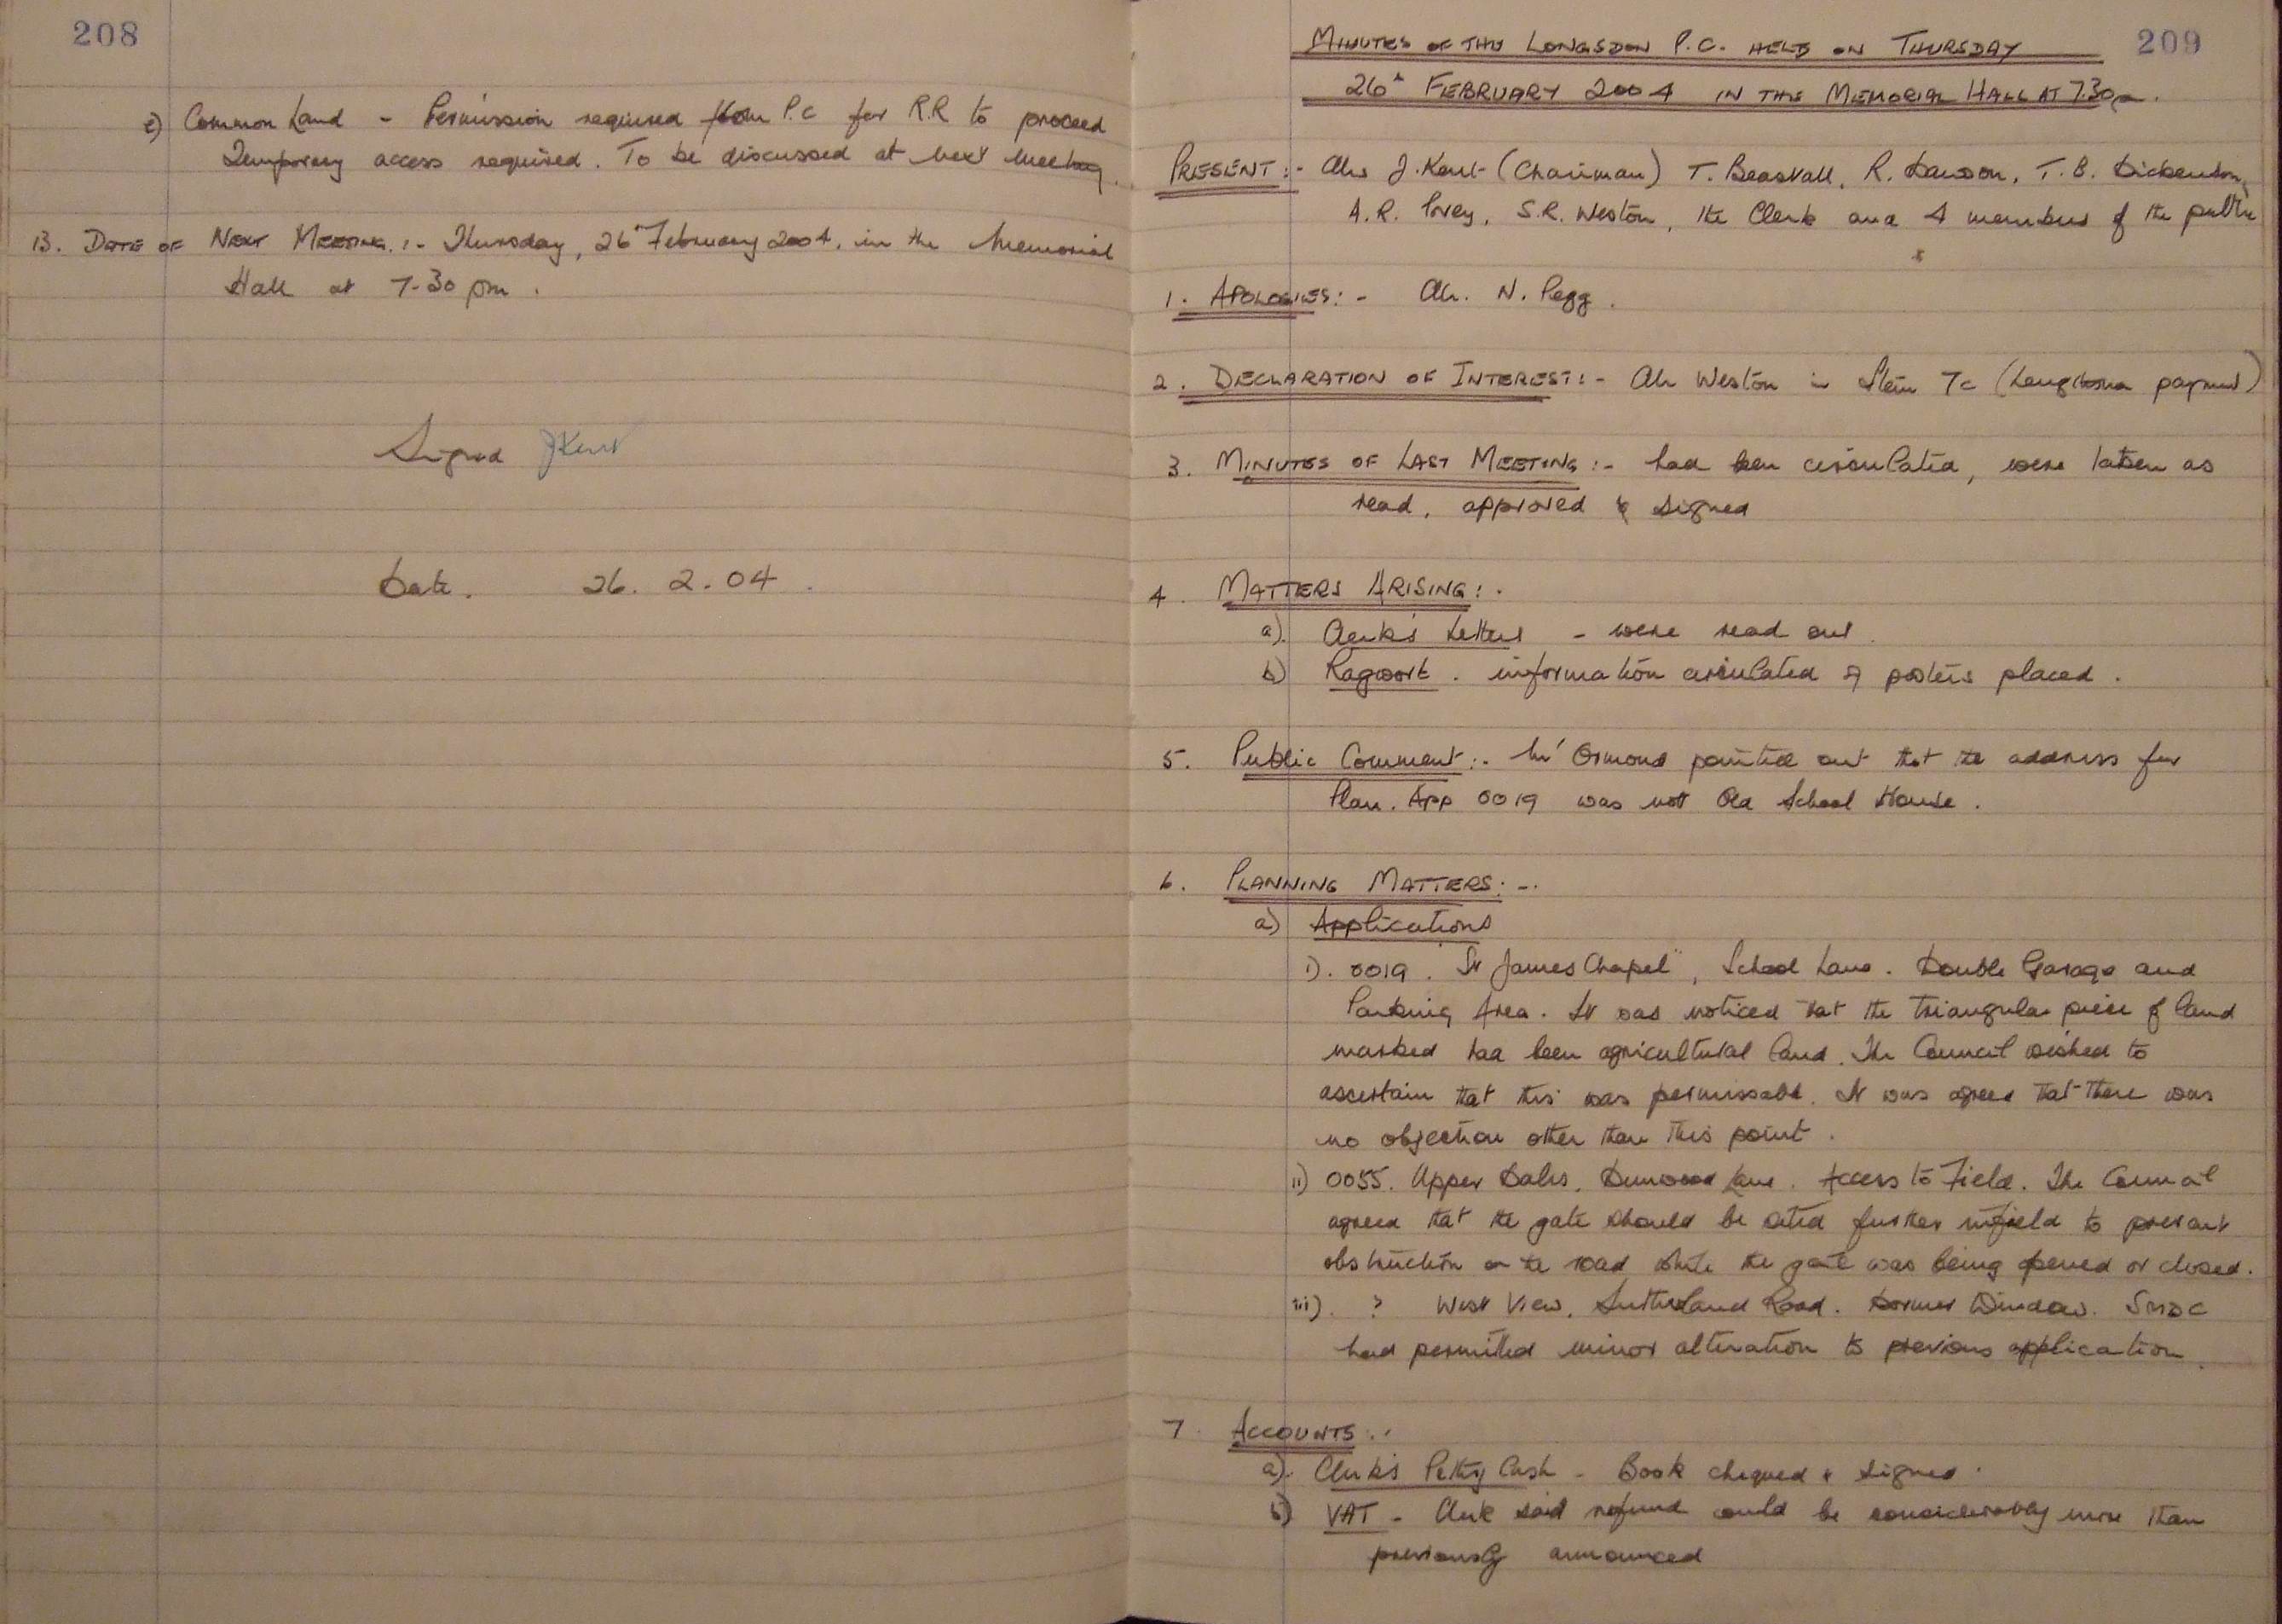 208
e) Common Land - Permission required from P.C for R.R to proceed
Temporary access required. To be discussed at next meeting.
13. DATE OF NEXT MEETING :- Thursday, 26th February 2004, in the Memorial
Hall at 7-30 pm.
Signed JKent
Date. 26. 2. 04.
209
MINUTES OF THE LONGSDON P.C. HELD ON THURSDAY
26th FEBRUARY 2004 IN THE MEMORIAL HALL AT 7.30pm.
PRESENT :- Cllrs J. Kent (Chairman) T. Beasvall, R. Dawson, T. B. Dickenson,
A.R. Povey, S.R. Weston, the Clerk and 4 members of the public
1. APOLOGIES :- Cllr. N. Pegg.
2. DECLARATION OF INTEREST :- Cllr Weston in Item 7c ( payment)
3. MINUTES OF LAST MEETING :- had been circulated, were taken as
read, approved & signed
4. MATTERS ARISING :-
a). Clerk's Letters - were read out.
b) Ragwort. information circulated & posters placed.
5. Public Comment :- Mr Ormond pointed out that the address for
Plan. App 0019 was not Old School House.
6. PLANNING MATTERS :-
a) Applications
i). 0019. "St James Chapel", School Lane. Double Garage and
Parking Area. It was noticed that the triangular piece of land
marked had been agricultural land. The Council wished to
ascertain that this was permissable. It was agreed that there was
no objection other than this point.
ii) 0055. Upper Dales, Dunwood Lane. Access to Field. The Council
agreed that the gate should be sited further infield to prevent
obstruction on the road while the gate was being opened or closed.
iii). ? West View, Sutherland Road. Dormer Window. SMDC
had permitted minor alteration to previous application.
7. ACCOUNTS :-
a). Clerk's Petty Cash - Book chequed & signed.
b) VAT - Clerk said refund could be considerably more than
previously announced